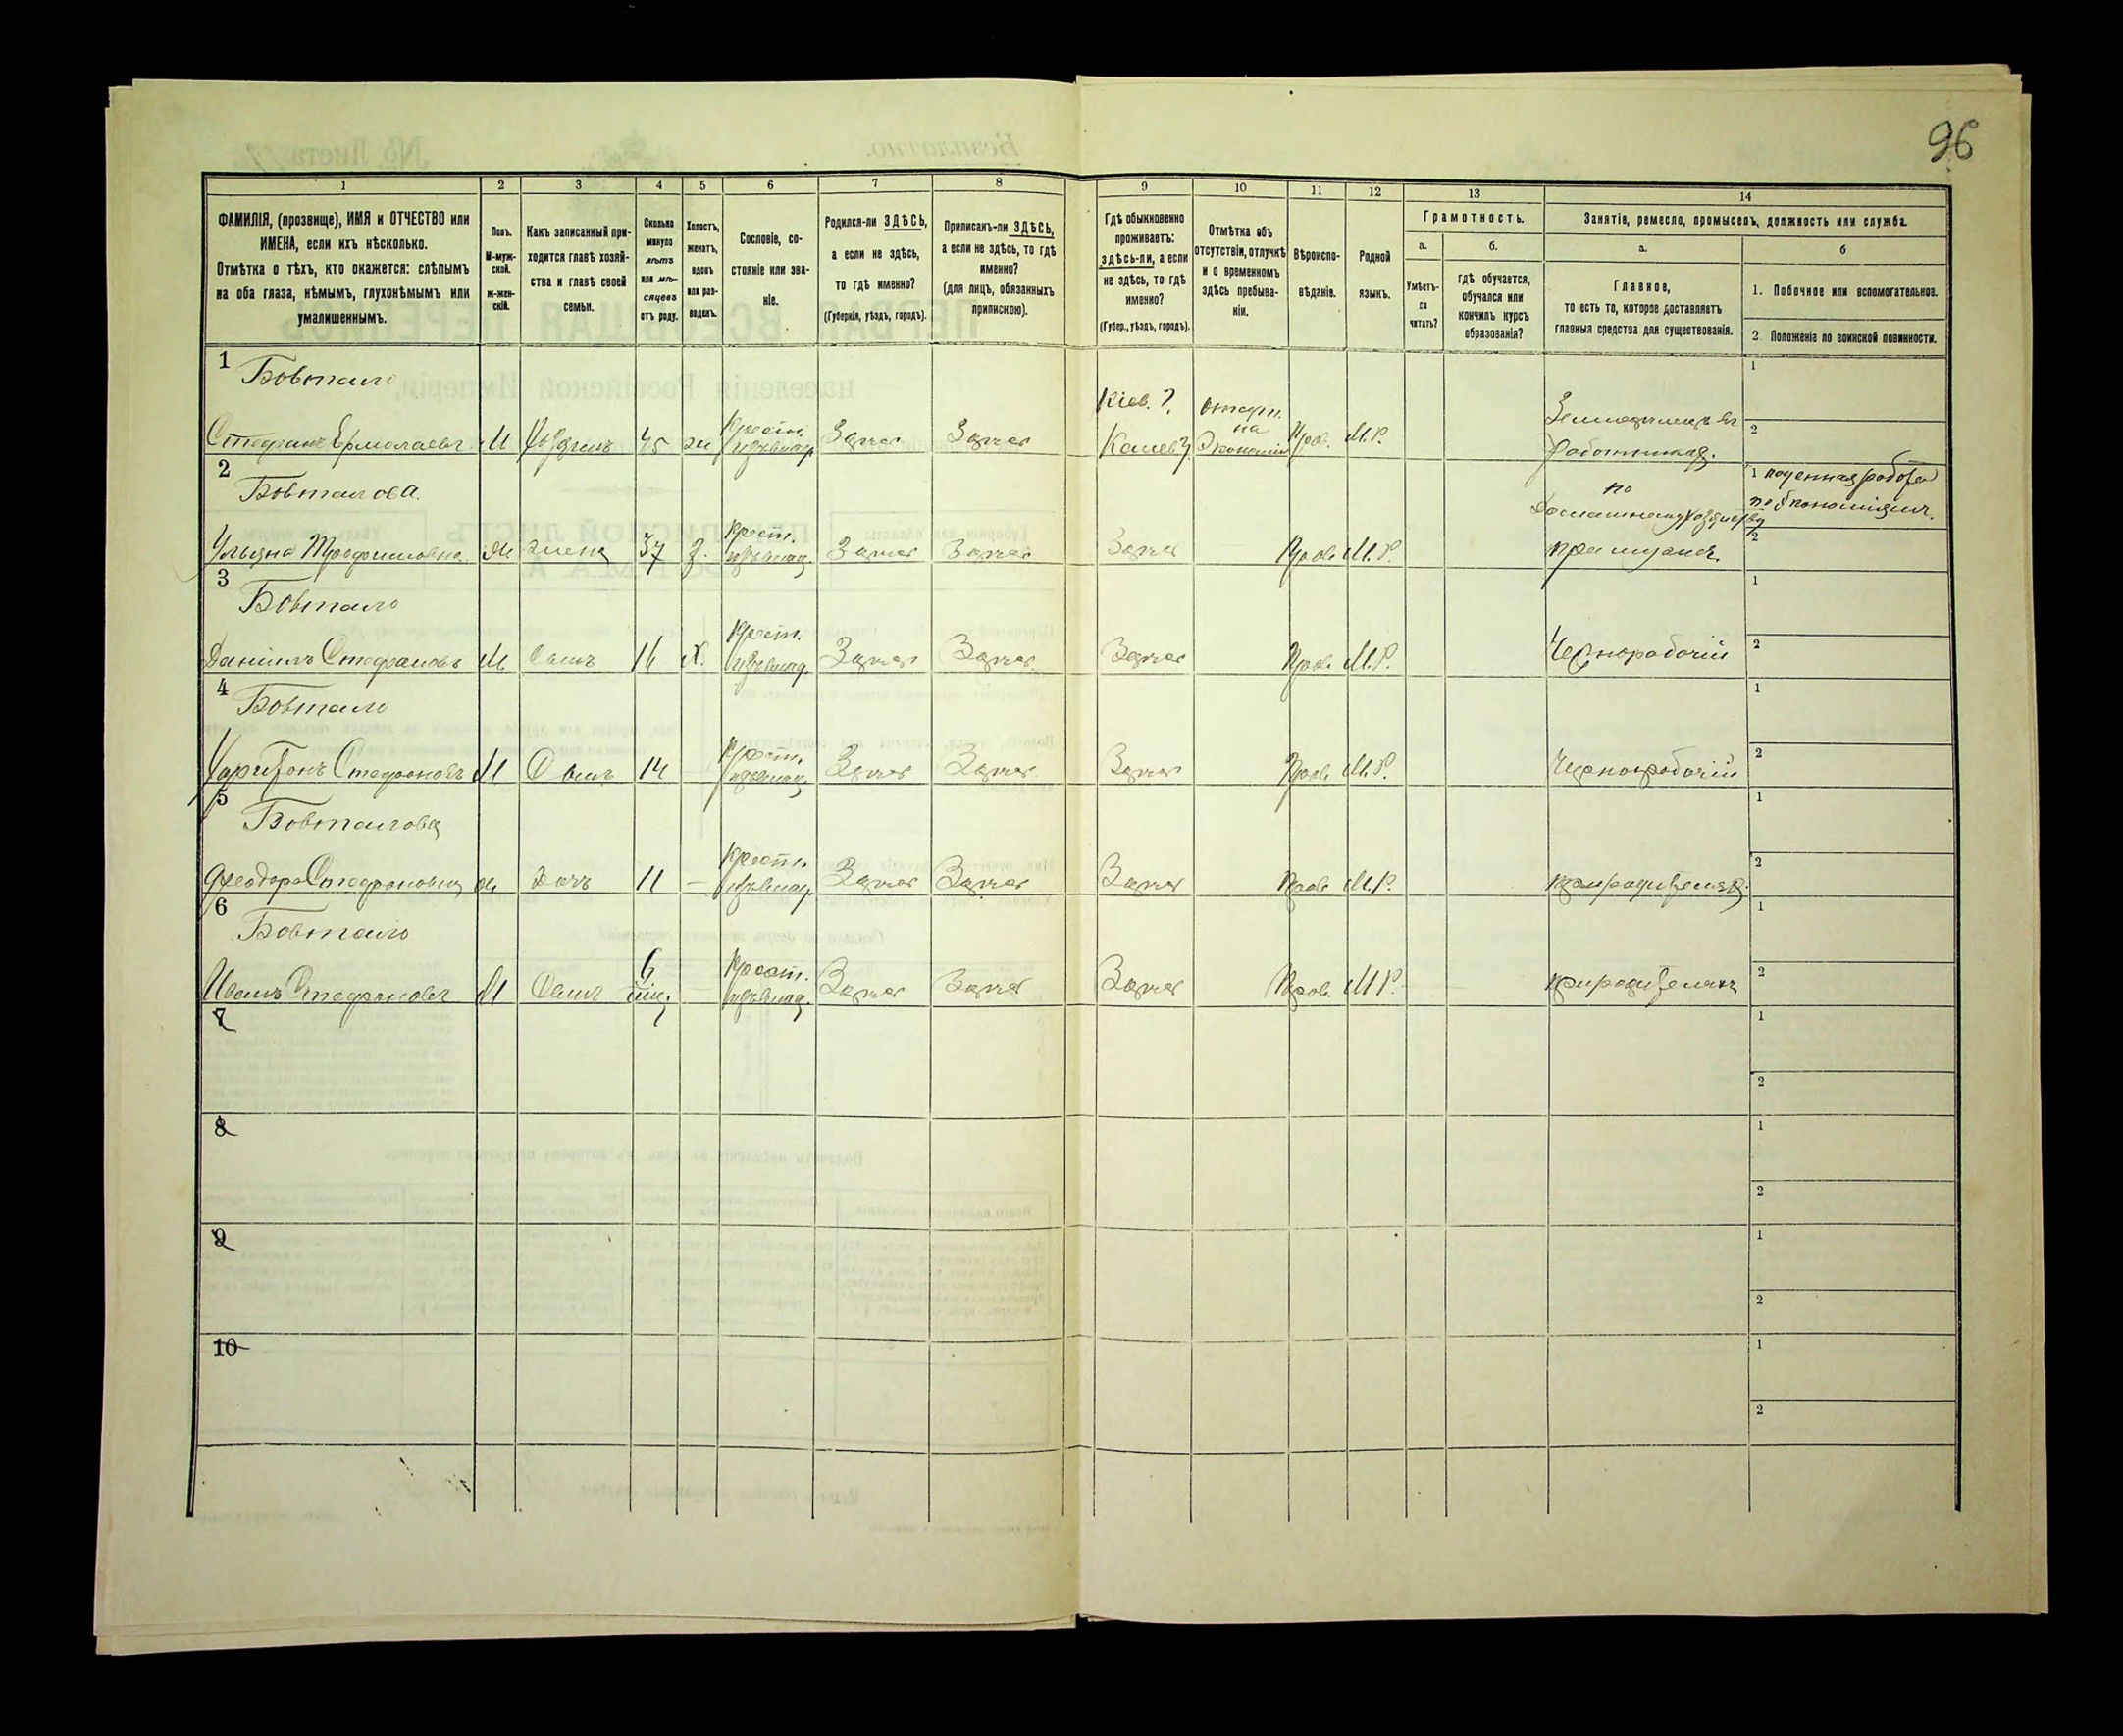 96
1
2
3
4
5
6
7
8
9
10
11
12
13
14
ФАМИЛІЯ, (прозвище), ИМЯ и ОТЧЕСТВО или
ИМЕНА, если ихъ нѣсколько.
Отмѣтка о тѣхъ, кто окажется: слѣпымъ
на оба глаза, нѣмымъ, глухонѣмымъ или
умалишеннымъ.
Полъ.
М-муж-
ской.
ж-жен-
скій.
Какъ записанный при-
ходится главѣ хозяй-
ства и главѣ своей
семьи.
Сколько
минуло
лѣтъ
или мѣ-
сяцевъ
отъ роду.
Холостъ,
женатъ,
вдовъ
или раз-
веденъ.
Сословіе, со-
стояніе или зва-
ніе.
Родился-ли ЗДѢСЬ,
а если не здѣсь,
то гдѣ именно?
(Губернія, уѣздъ, городъ).
Приписанъ-ли ЗДѢСЬ,
а если не здѣсь, то гдѣ
именно?
(для лицъ, обязанныхъ
припискою).
Гдѣ обыкновенно
проживаетъ:
здѣсь-ли, а если
не здѣсь, то гдѣ
именно?
(Губер., уѣздъ, городъ).
Отмѣтка объ
отсутствіи, отлучкѣ
и о временномъ
здѣсь пребыва-
ніи.
Вѣроиспо-
вѣданіе.
Родной
языкъ.
Грамотность.
а.
Умѣетъ-
ли
читать?
б.
гдѣ обучается,
обучался или
кончилъ курсъ
образованія?
Занятіе, ремесло, промыселъ, должность или служба.
а.
Главное,
то есть то, которое доставляетъ
главныя средства для существованія.
б
1. Побочное или вспомогательное.
2. Положеніе по воинской повинности.
1
Бовтало
Стефанъ Ермолаевъ М Хозяинъ 45 ж Крест. Здѣсь Здѣсь Кіев. Каневъ на Экономіи Прав. М.Р. работникъ
1
2
2
Бовталова
Ульяна Трофимовна Ж жена 37 З. Крест. Здѣсь Здѣсь Здѣсь Прав. М.Р. по домашнему хозяйству при мужѣ
1 поденная работа
по экономіямъ.
2
3
Бовтало
Даніилъ Стефановъ М Сынъ 16 Х. Крест. Здѣсь Здѣсь Здѣсь Прав. М.Р. Чернорабочій
1
2
4
Бовтало
Харитонъ Стефановъ М Сынъ 14 Крест. Здѣсь Здѣсь Здѣсь Прав. М.Р. Чернорабочій
1
2
5
Бовталова
Феодора Стефановна Ж Дочь 11 – Крест. Здѣсь Здѣсь Здѣсь Прав. М.Р. при родителяхъ
1
2
6
Бовтало
Иванъ Стефановъ М Сынъ 6 міц. Крест. Здѣсь Здѣсь Здѣсь Прав. М.Р. при родителяхъ
1
2
7
1
2
8
1
2
9
1
2
10
1
2